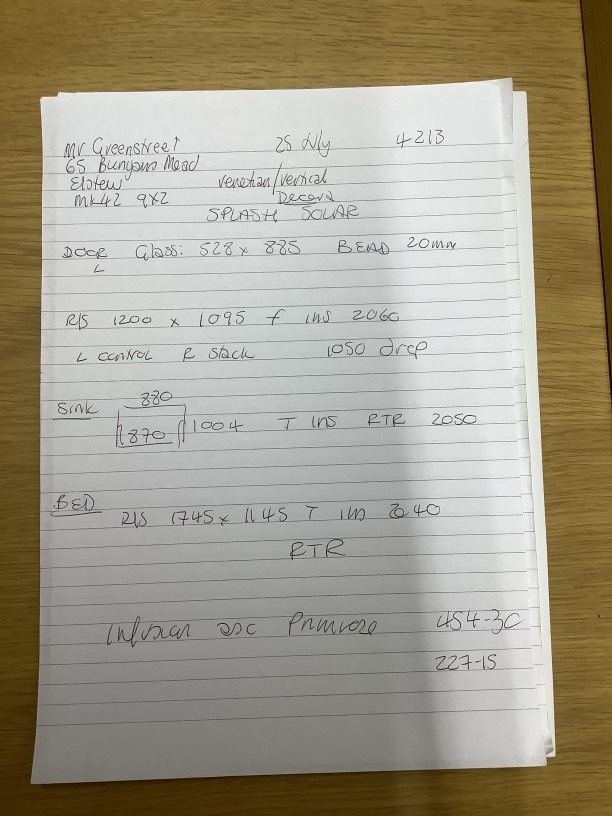 Mr Greenstreet 25 July 4213
65 Bunyans Mead
Elstow venetian/vertical
MK42 9XZ Decora
SPLASH SOLAR
DOOR Glass: 528 x 885 BEAD 20mm
L
R/S 1200 x 1095 f ins 2060
L control R stack 1050 drop
Sink 880
870 1004 T ins RTR 2050
BED
R/S 1745 x 1145 T ins 2040
RTR
Infusion asc Primrose 454-3C
227-15